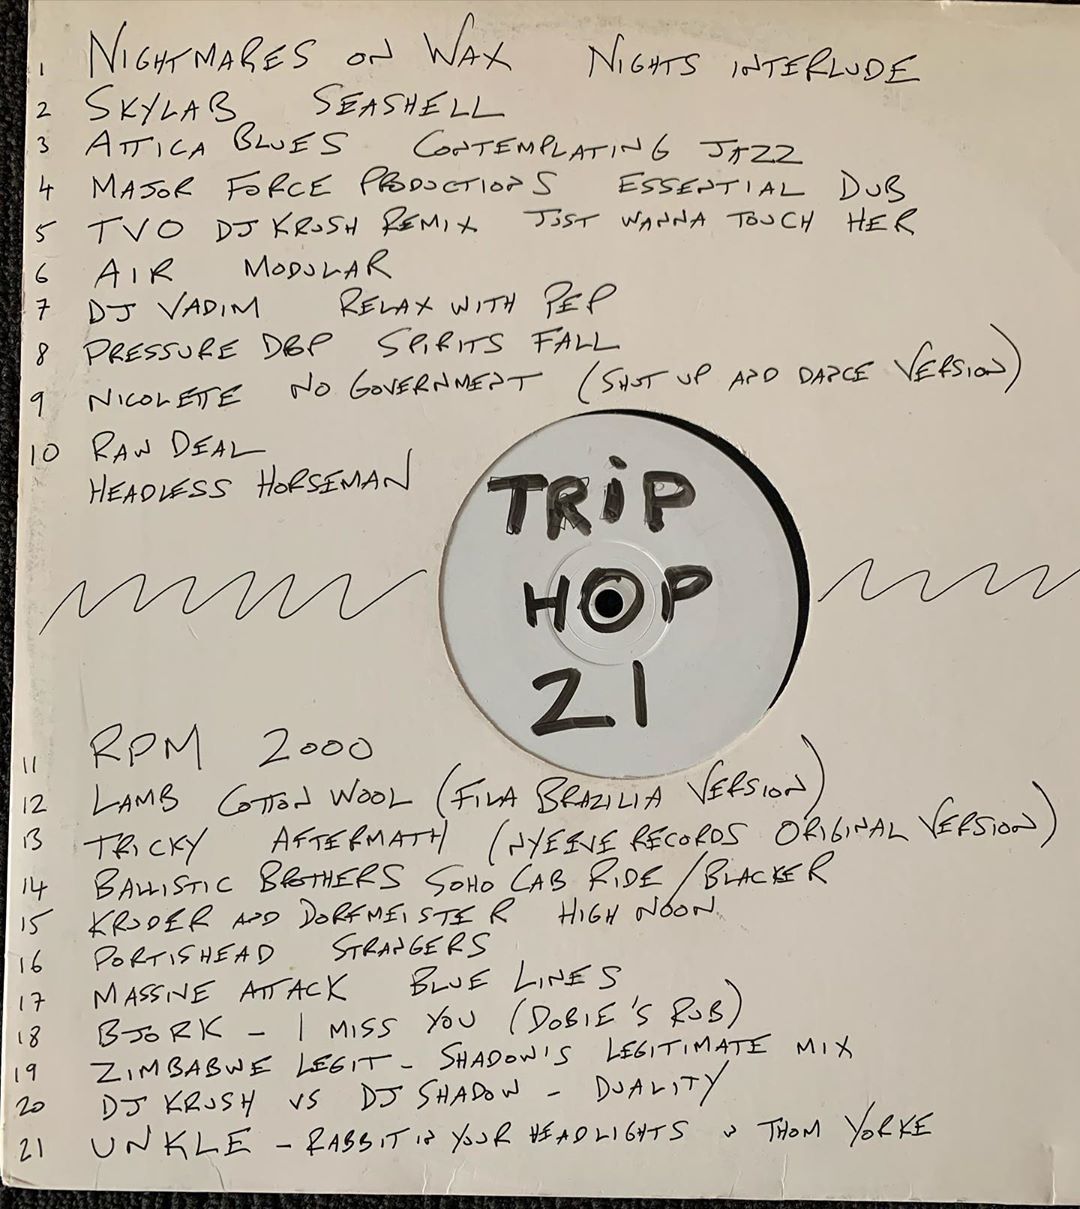 1 NIGHTMARES ON WAX NIGHTS INTERLUDE
2 SKYLAB SEASHELL
3 ATTICA BLUES CONTEMPLATING JAZZ
4 MAJOR FORCE PRODUCTIONS ESSENTIAL DUB
5 TVO DJ KRUSH REMIX JUST WANNA TOUCH HER
6 AIR MODULAR
7 DJ VADIM RELAX WITH PEP
8 PRESSURE DROP SPIRITS FALL
9 NICOLETTE NO GOVERNMENT (SHUT UP AND DANCE VERSION)
10 RAW DEAL
HEADLESS HORSEMAN
TRIP
HOP
21
11 RPM 2000
12 LAMB COTTON WOOL (FILA BRAZILIA VERSION)
13 TRICKY AFTERMATH (RECORDS ORIGINAL VERSION)
14 BALLISTIC BROTHERS SOHO CAB RIDE / BLACKER
15 KRUDER AND DORFMEISTER HIGH NOON
16 PORTISHEAD STRANGERS
17 MASSIVE ATTACK BLUE LINES
18 BJORK - I MISS YOU (DOBIE'S RUB)
19 ZIMBABWE LEGIT - SHADOW'S LEGITIMATE MIX
20 DJ KRUSH VS DJ SHADOW - DUALITY
21 UNKLE - RABBIT IN YOUR HEADLIGHTS THOM YORKE